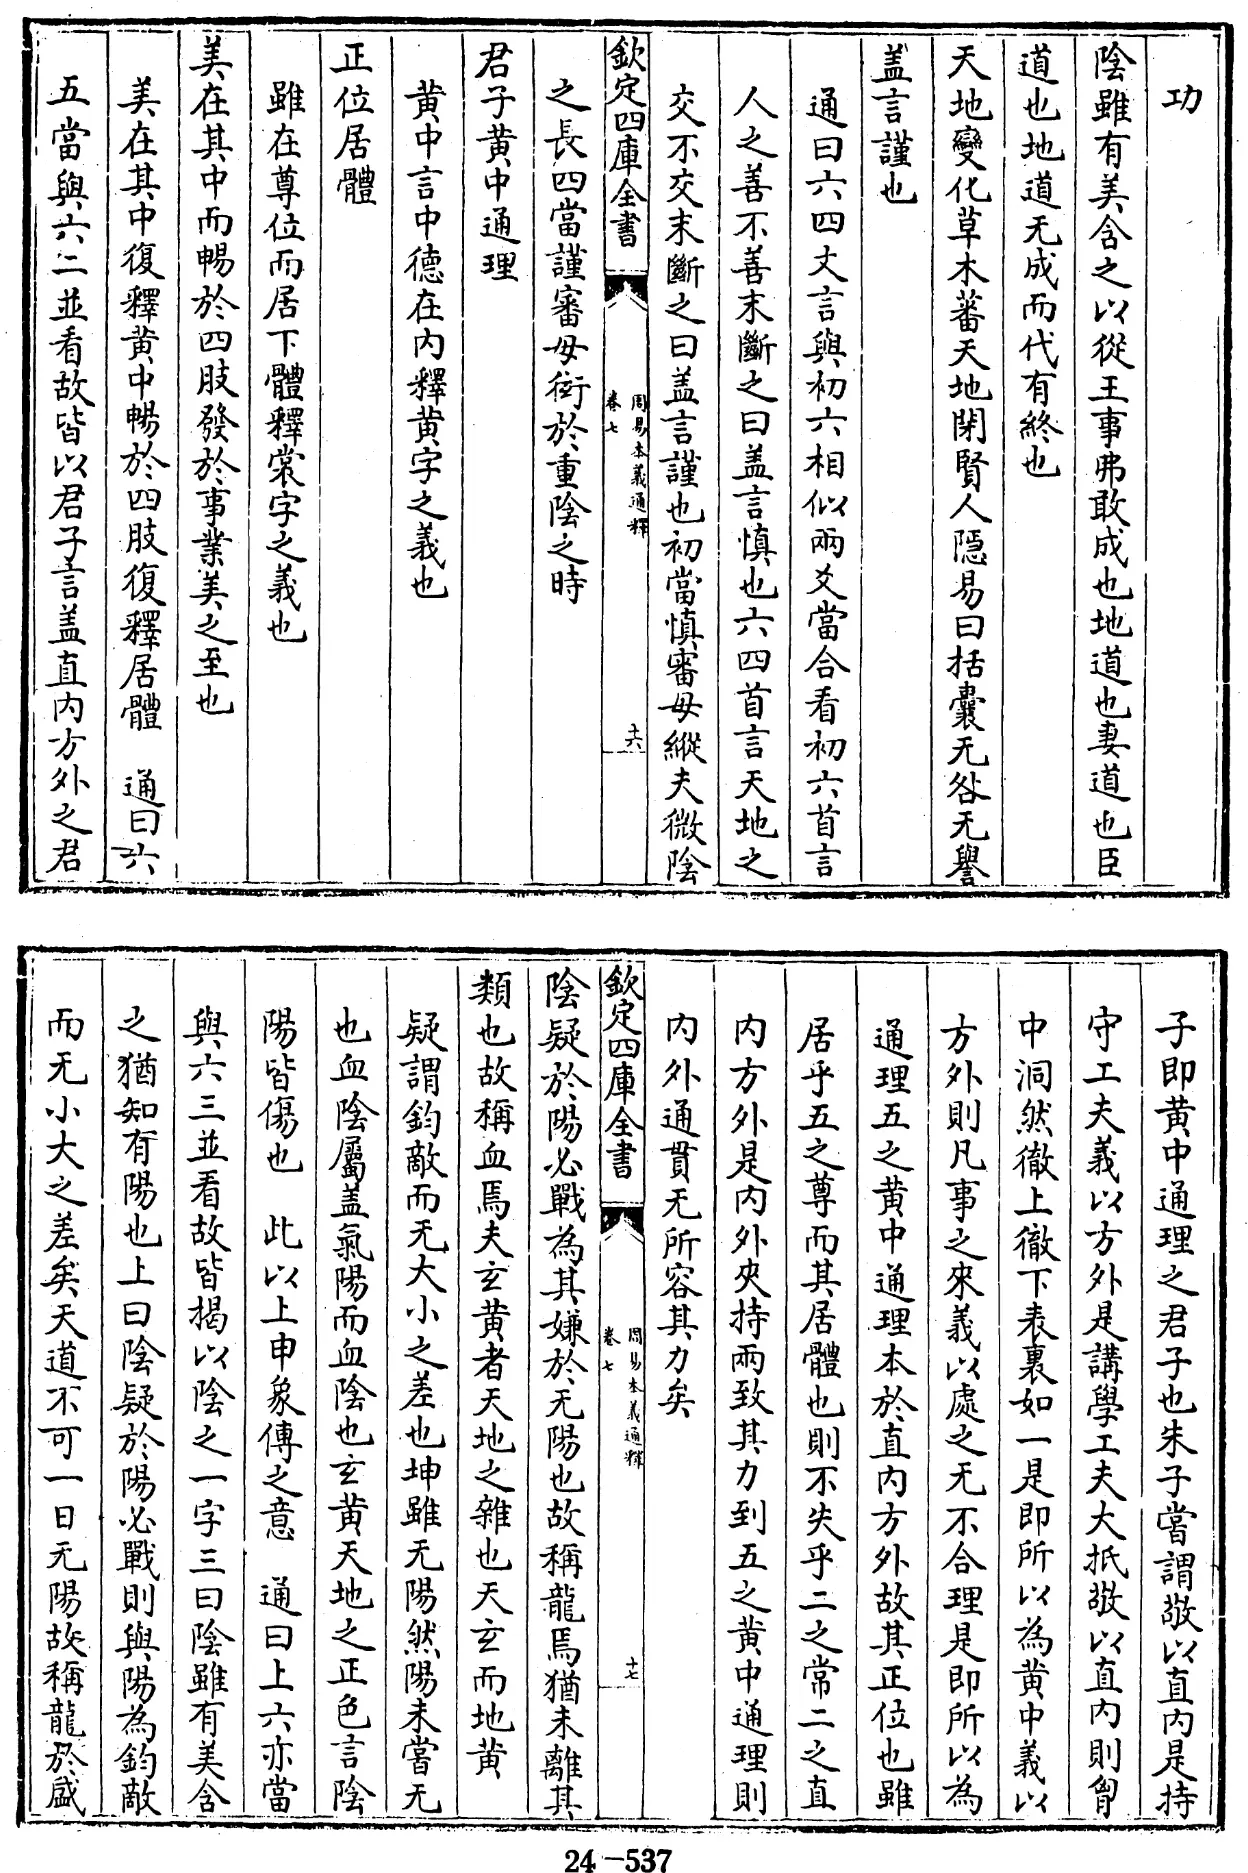 功
陰雖有美含之以從王事弗敢成也地道也妻道也臣
道也地道无成而代有終也
天地變化草木蕃天地閉賢人隱易曰括囊无咎无譽
盖言謹也
通曰六四文言與初六相似兩爻當合看初六首言
人之善不善末斷之曰盖言慎也六四首言天地之
交不交末斷之曰盖言謹也初當慎審毋縱夫微陰
欽定四庫全書
周易本義通釋
卷七
十六
之長四當謹審毋衒於重陰之時
君子黄中通理
黄中言中德在内釋黄字之義也
正位居體
雖在尊位而居下體釋裳字之義也
美在其中而暢於四肢發於事業美之至也
美在其中復釋黄中暢於四肢復釋居體 通曰六
五當與六二並看故皆以君子言盖直内方外之君
子即黄中通理之君子也朱子嘗謂敬以直内是持
守工夫義以方外是講學工夫大抵敬以直内則胷
中洞然徹上徹下表裏如一是即所以為黄中義以
方外則凡事之來義以處之无不合理是即所以為
通理五之黄中通理本於直内方外故其正位也雖
居乎五之尊而其居體也則不失乎二之常二之直
内方外是内外夾持兩致其力到五之黄中通理則
内外通貫无所容其力矣
欽定四庫全書
周易本義通釋
卷七
十七
陰疑於陽必戰為其嫌於无陽也故稱龍焉猶未離其
類也故稱血焉夫玄黄者天地之雜也天玄而地黄
疑謂鈞敵而无大小之差也坤雖无陽然陽未嘗无
也血陰屬盖氣陽而血陰也玄黄天地之正色言陰
陽皆傷也 此以上申象傳之意 通曰上六亦當
與六三並看故皆揭以陰之一字三曰陰雖有美含
之猶知有陽也上曰陰疑於陽必戰則與陽為鈞敵
而无小大之差矣天道不可一日无陽故稱龍於盛
24-537